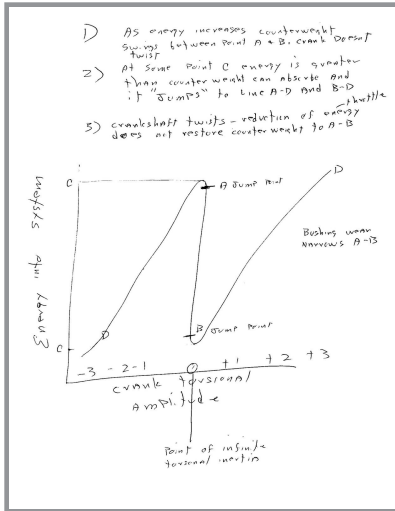 1) AS energy increases counterweight
swings between Point A & B. crank Doesnt
twist
2) At Some Point C energy is greater
than counterweight can absorb And
it "Jumps" to Line A-D And B-D
3) crankshaft twists - reduction of energy
throttle
does not restore counterweight to A-B
C
A Jump Point
D
Bushing wear
Narrows A-B
Energy into system
D
B Jump Point
C
-3 -2 -1 0 +1 +2 +3
Crank torsional
Amplitude
Point of infinite
torsional inertia